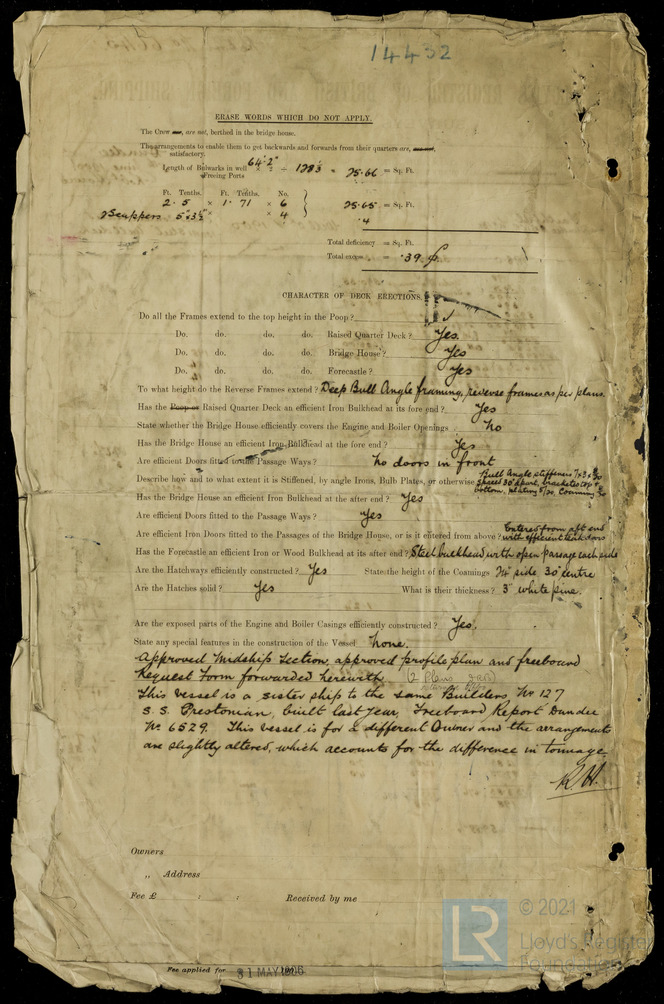 14432
ERASE WORDS WHICH DO NOT APPLY.
The Crew are, are not, berthed in the bridge house.
The arrangements to enable them to get backwards and forwards from their quarters are, are not, satisfactory.
Length of Bulwarks in well 64·2" × 2 ÷ = 25·66 = Sq. Ft.
Freeing Ports
Ft. Tenths. Ft. Tenths. No.
2·5 × 1·71 × 6 25·65 = Sq. Ft.
Scuppers 5"×3½" × 4 ·4
Total deficiency = Sq. Ft.
Total excess = ·39
CHARACTER OF DECK ERECTIONS.
Do all the Frames extend to the top height in the Poop?
Do. do. do. do. Raised Quarter Deck? Yes.
Do. do. do. do. Bridge House? Yes
Do. do. do. do. Forecastle? Yes
To what height do the Reverse Frames extend? Deep Bull Angle framing, reverse frames as per plans.
Has the Poop or Raised Quarter Deck an efficient Iron Bulkhead at its fore end? Yes
State whether the Bridge House efficiently covers the Engine and Boiler Openings No
Has the Bridge House an efficient Iron Bulkhead at the fore end? Yes
Are efficient Doors fitted to the Passage Ways? No doors in front
Describe how and to what extent it is Stiffened, by angle Irons, Bulb Plates, or otherwise Bull Angle stiffeners 7×3×
spaced 30" apart, brackets top &
bottom, plating 8/20, Coaming
Has the Bridge House an efficient Iron Bulkhead at the after end? Yes
Are efficient Doors fitted to the Passage Ways? Yes
Are efficient Iron Doors fitted to the Passages of the Bridge House, or is it entered from above? Entered from aft end
with efficient teak doors
Has the Forecastle an efficient Iron or Wood Bulkhead at its after end? Steel bulkhead with open passage each side
Are the Hatchways efficiently constructed? Yes State the height of the Coamings 24" side 30" centre
Are the Hatches solid? Yes What is their thickness? 3" white pine.
Are the exposed parts of the Engine and Boiler Casings efficiently constructed? Yes.
State any special features in the construction of the Vessel None.
Approved Midship Section, approved profile plan and freeboard
Request Form forwarded herewith (2 Plans
This vessel is a sister ship to the same Builders No 127
S.S. Prestonian, built last year, Freeboard Report Dundee
No 6529. This vessel is for a different Owner and the arrangements
are slightly altered, which accounts for the difference in tonnage.
R.H.
Owners
„ Address
Fee £ : : Received by me
Fee applied for 31 MAY 1906
LR
© 2021
Lloyd's Register
Foundation